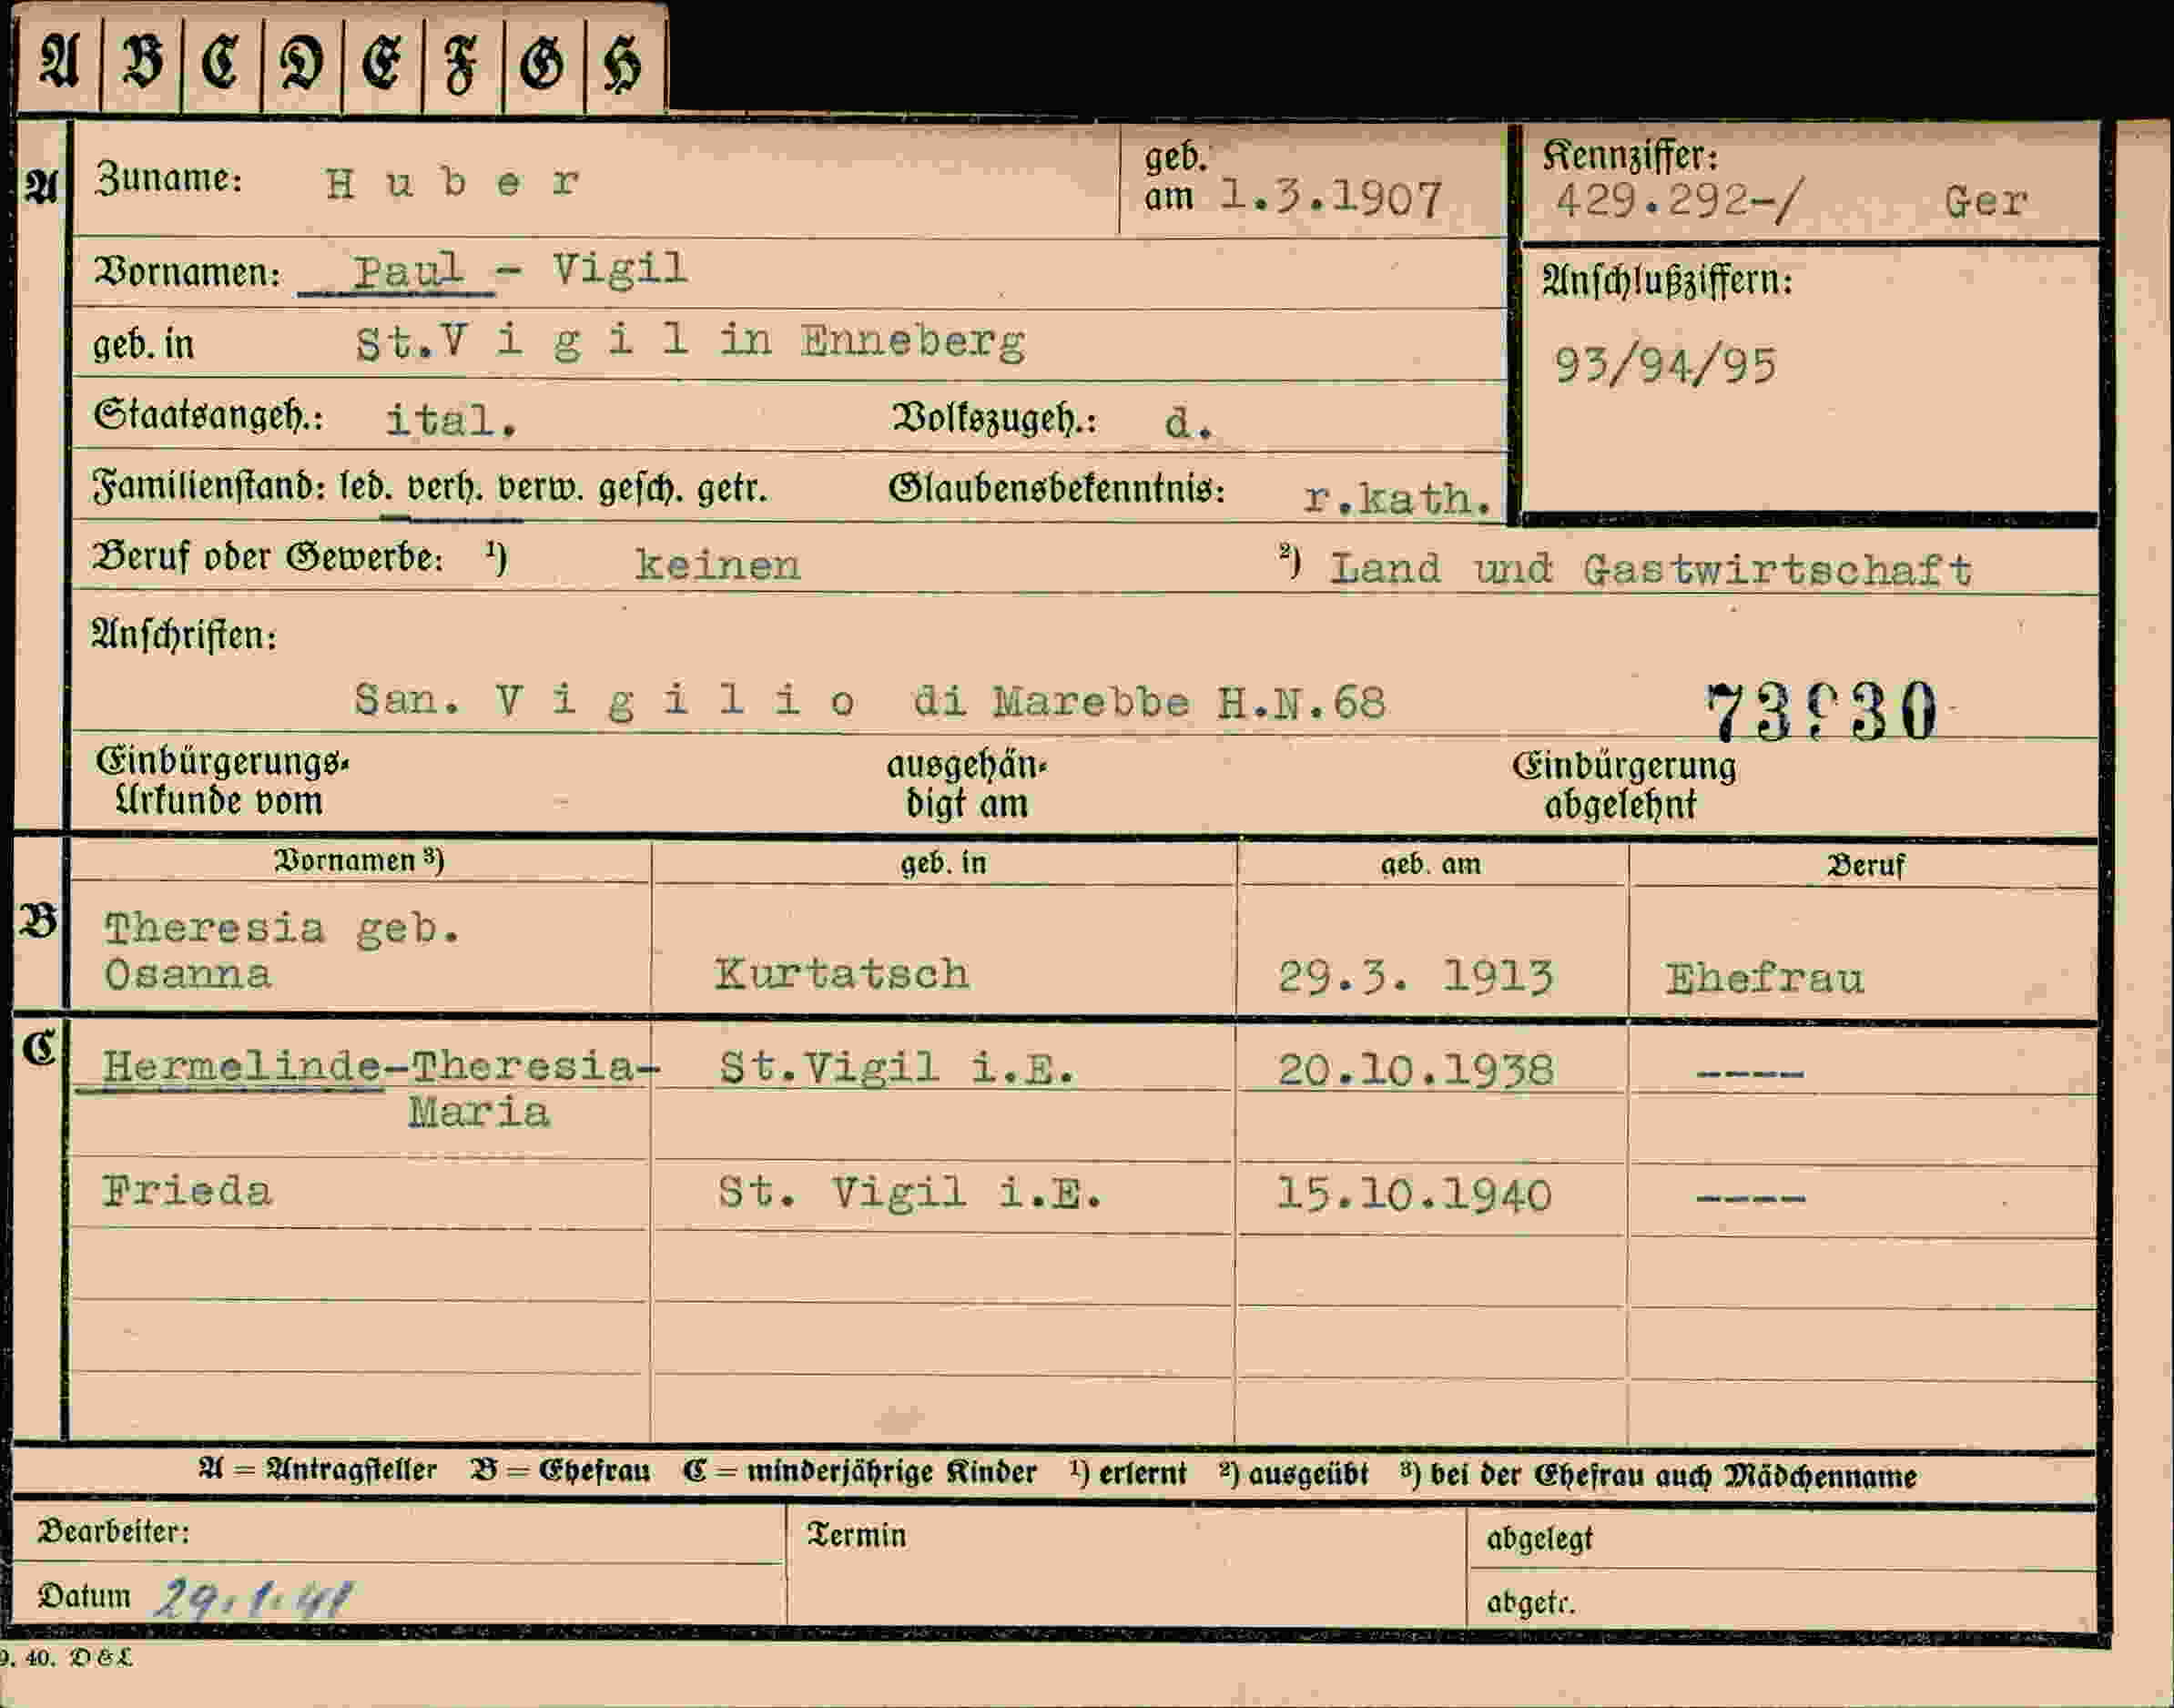 A B C D E F G H
A Zuname: H u b e r geb. am 1.3.1907 Kennziffer: 429.292-/ Ger
Vornamen: Paul - Vigil Anschlußziffern:
geb. in St.V i g i l in Enneberg 93/94/95
Staatsangeh.: ital. Volkszugeh.: d.
Familienstand: led. verh. verw. gesch. getr. Glaubensbekenntnis: r.kath.
Beruf oder Gewerbe: ¹) keinen ²) Land und Gastwirtschaft
Anschriften:
San. V i g i l i o di Marebbe H.N.68
Einbürgerungs- ausgehän- Einbürgerung
Urkunde vom digt am abgelehnt
Vornamen ³) geb. in geb. am Beruf
B Theresia geb.
Osanna Kurtatsch 29.3. 1913 Ehefrau
C Hermelinde-Theresia- St.Vigil i.E. 20.10.1938 ----
Maria
Frieda St. Vigil i.E. 15.10.1940 ----
A = Antragsteller B = Ehefrau C = minderjährige Kinder ¹) erlernt ²) ausgeübt ³) bei der Ehefrau auch Mädchenname
Bearbeiter: Termin abgelegt
Datum 29.1.41 abgetr.
9. 40. D & L